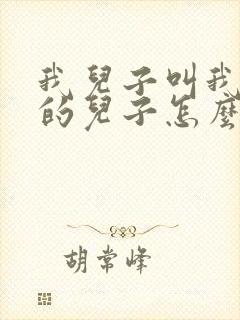 我兒子叫我
的兒子怎麼
胡常峰